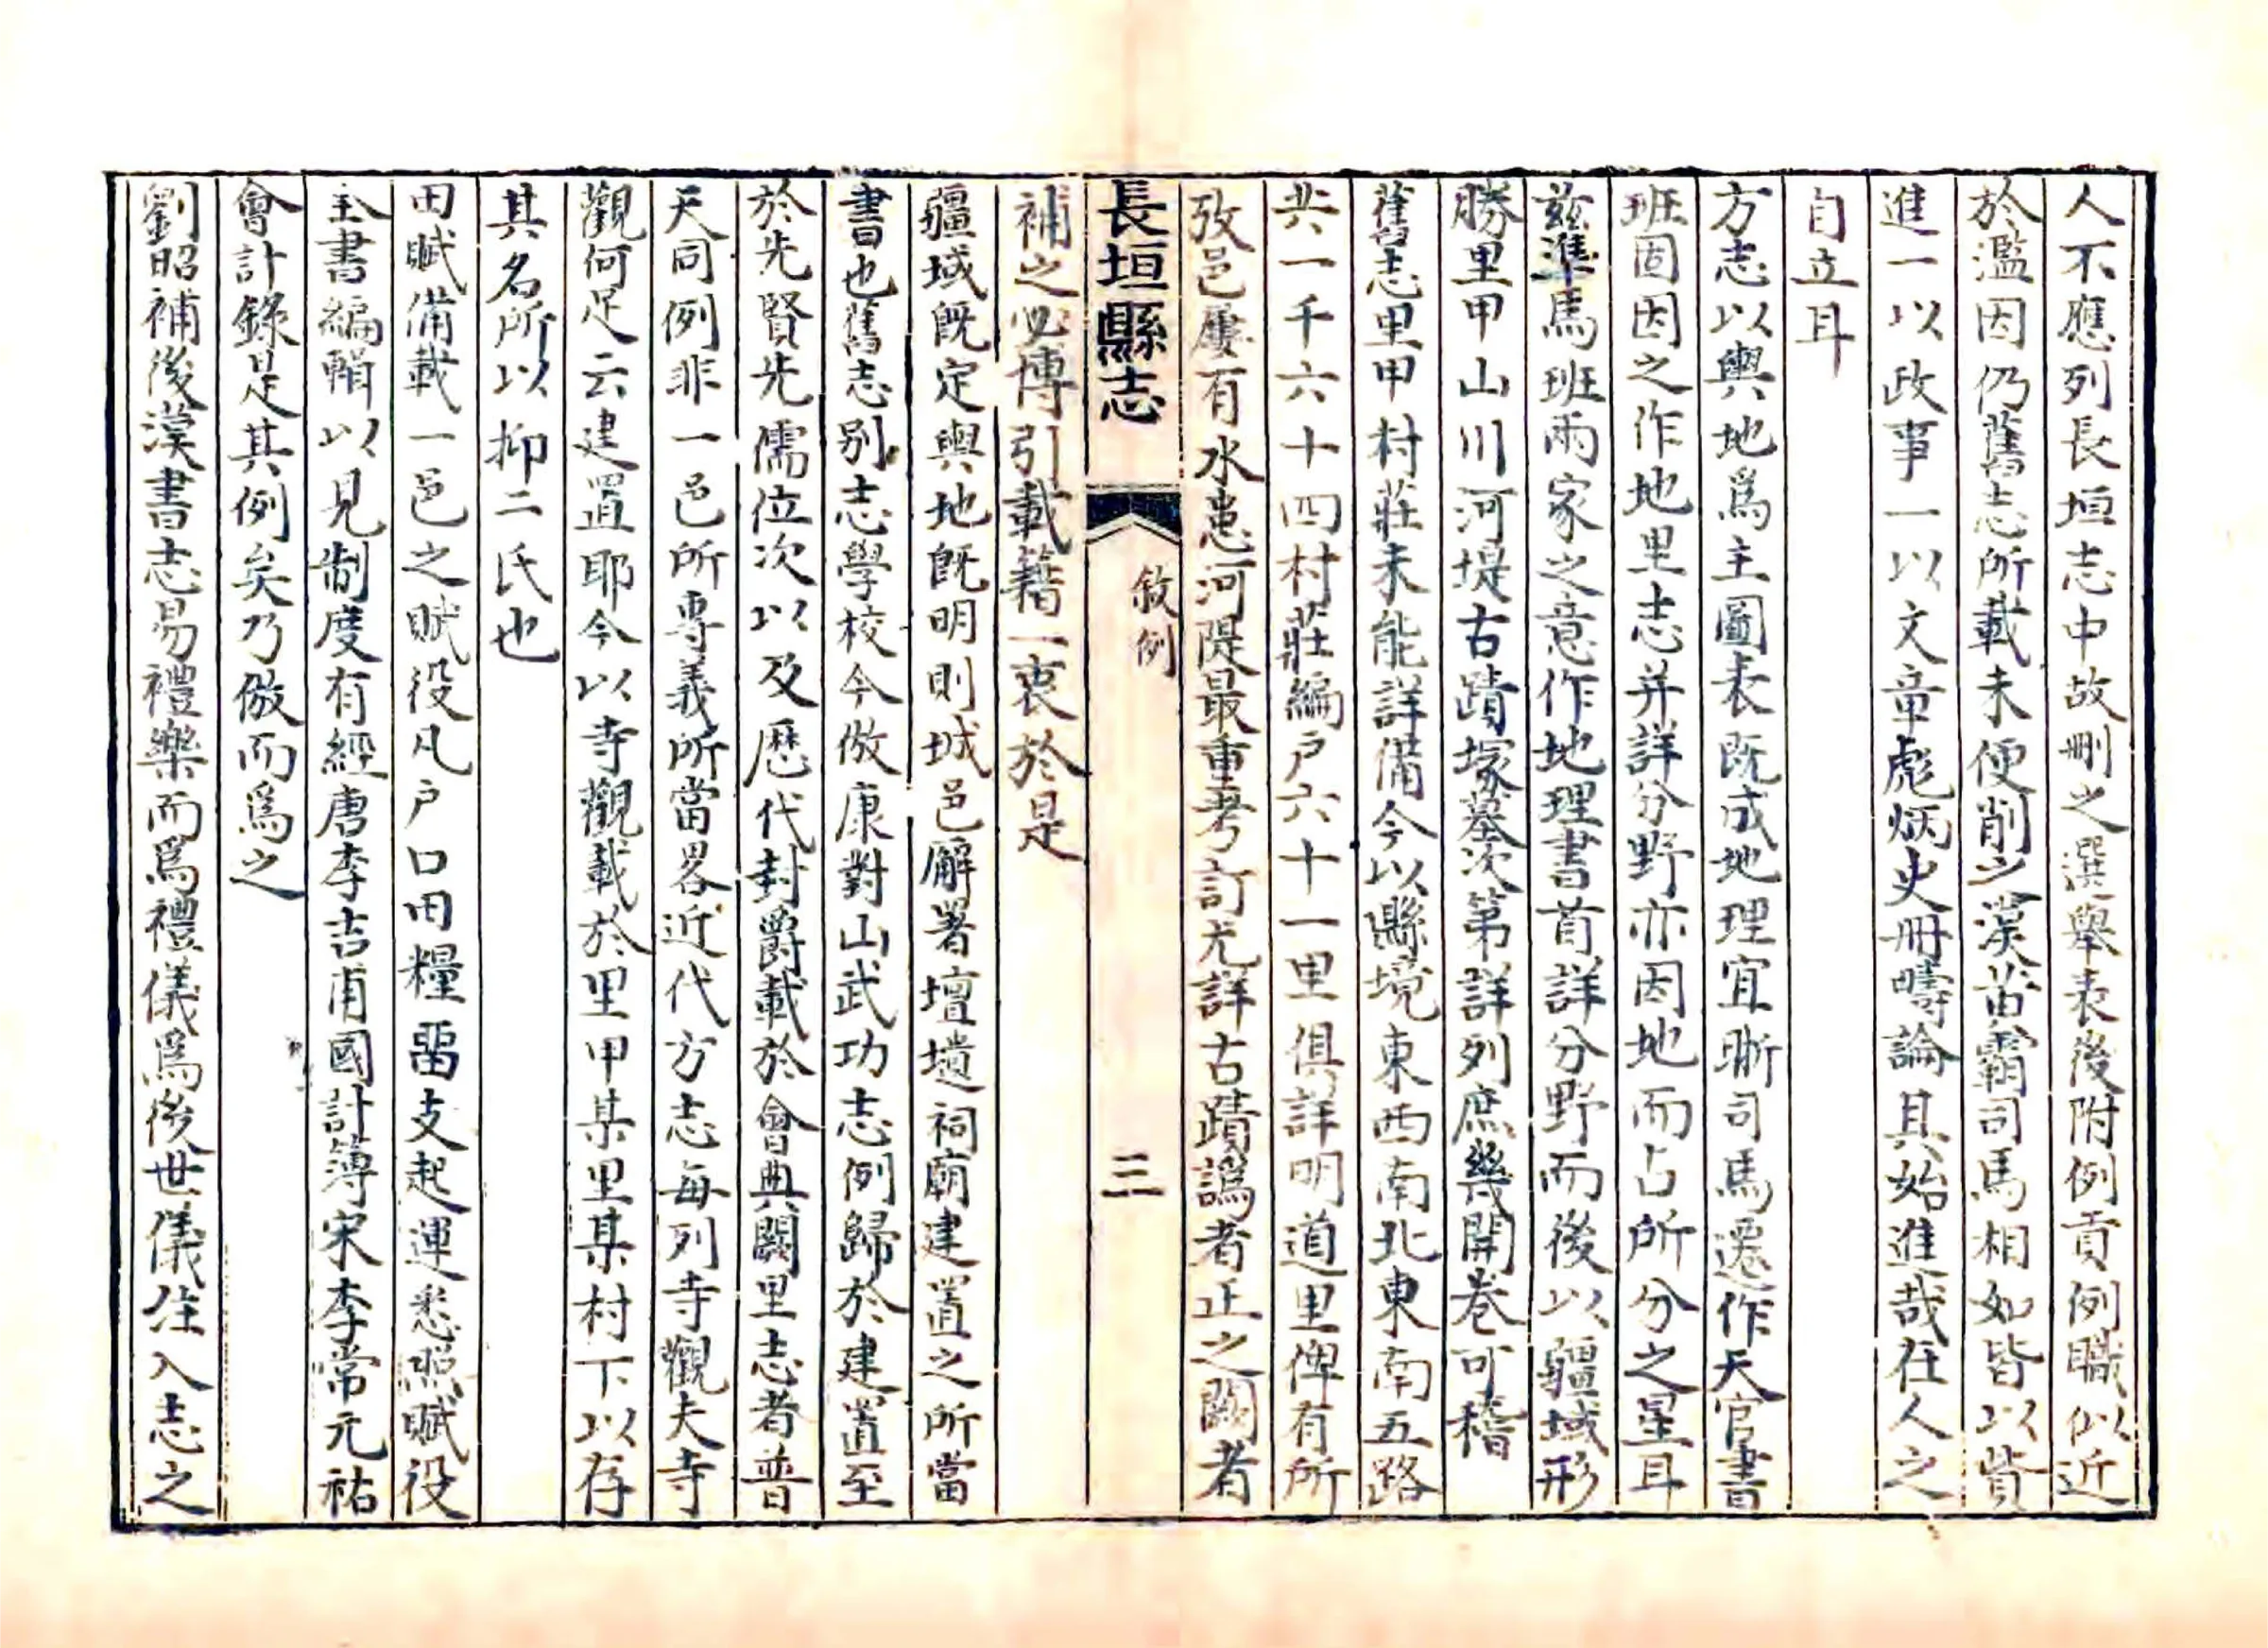 人不應列長垣志中故刪之選舉表後附例貢例職似近
於濫因仍舊志所載未便削之漢黃霸司馬相如皆以貲
進一以政事一以文章彪炳史冊疇論其始進哉在人之
自立耳
方志以輿地爲主圖表既成地理宜晰司馬遷作天官書
班固因之作地里志并詳分野亦因地而占所分之星耳
茲準馬班兩家之意作地理書首詳分野而後以疆域形
勝里甲山川河堤古蹟塚墓次第詳列庶幾開卷可稽
舊志里甲村莊未能詳備今以縣境東西南北東南五路
共一千六十四村莊編戶六十一里俱詳明道里俾有所
攷邑屢有水患河隄最重考訂尤詳古蹟譌者正之闕者
長垣縣志
敘例
三
補之必博引載籍一衷於是
疆域既定輿地既明則城邑廨署壇壝祠廟建置之所當
書也舊志別志學校今倣康對山武功志例歸於建置至
於先賢先儒位次以及歷代封爵載於會典闕里志者普
天同例非一邑所專義所當畧近代方志每列寺觀夫寺
觀何足云建置耶今以寺觀載於里甲某里某村下以存
其名所以抑二氏也
田賦備載一邑之賦役凡戶口田糧畱支起運悉照賦役
全書編輯以見制度有經唐李吉甫國計簿宋李常元祐
會計錄是其例矣乃倣而爲之
劉昭補後漢書志易禮樂而爲禮儀爲後世儀注入志之